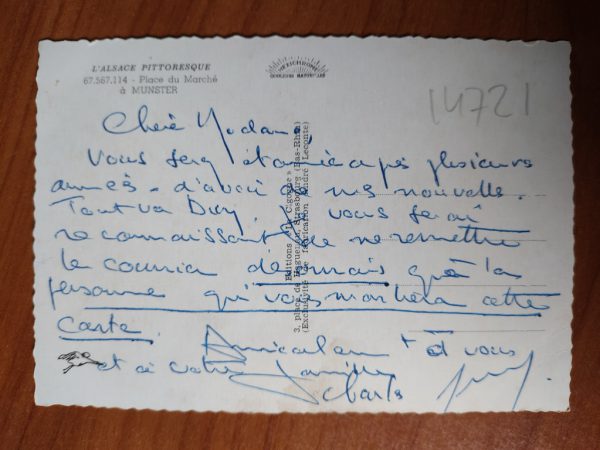 L'ALSACE PITTORESQUE
67.567.114 - Place du Marché
à MUNSTER
MEXICHROME
COULEURS NATURELLES
14721
Chère Madame,
Vous serez étonnée après plusieurs
années - d'avoir de mes nouvelle.
Tout va Bien, Je vous serai
reconnaissant de ne remettre
le courrier désormais qu'à la
personne qui vous montrera cette
carte. Amicalement à vous
et à votre famille
Charles
Editions « La Cigogne »
3, place de Haguenau, Strasbourg (Bas-Rhin)
(Exclusivité de fabrication André Leconte)